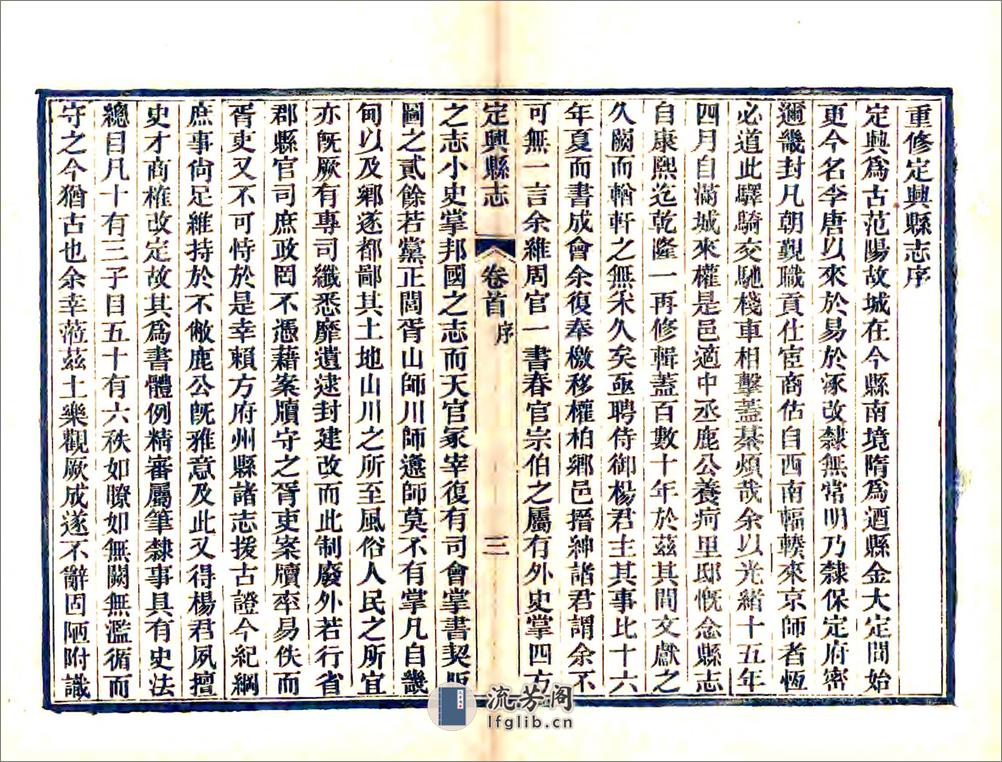 重修定興縣志序
定興爲古范陽故城在今縣南境隋爲遒縣金大定間始
更今名李唐以來於易於涿改隸無常明乃隸保定府密
邇畿封凡朝覲職貢仕宦商估自西南輻輳來京師者恆
必道此驛騎交馳棧車相擊蓋綦煩哉余以光緒十五年
四月自滿城來權是邑適中丞鹿公養疴里邸慨念縣志
自康熙迄乾隆一再修輯蓋百數十年於茲其間文獻之
久闕而輶軒之無釆久矣亟聘侍御楊君主其事比十六
年夏而書成會余復奉檄移權柏鄉邑搢紳諸君謂余不
可無一言余維周官一書春官宗伯之屬有外史掌四方
定興縣志 卷首 序 三
之志小史掌邦國之志而天官冢宰復有司會掌書契版
圖之貳餘若黨正閭胥山師川師邍師莫不有掌凡自畿
甸以及鄉遂都鄙其土地山川之所至風俗人民之所宜
亦旣厥有專司纖悉靡遺逮封建改而此制廢外若行省
郡縣官司庶政罔不憑藉案牘守之胥吏案牘率易佚而
胥吏又不可恃於是幸賴方府州縣諸志援古證今紀綱
庶事尙足維持於不敝鹿公旣雅意及此又得楊君夙擅
史才商榷改定故其爲書體例精審屬筆隸事具有史法
總目凡十有三子目五十有六秩如瞭如無闕無濫循而
守之今猶古也余幸蒞茲土樂觀厥成遂不辭固陋附識
流芳阁
lfglib.cn